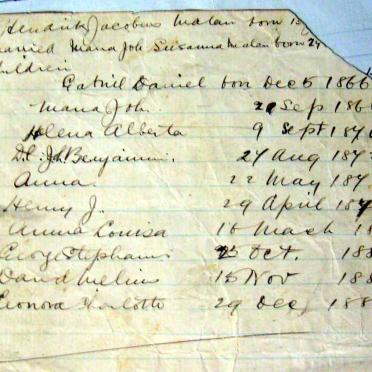 Hendrik Jacobus Malan born 13
married Maria Joh Susanna Malan born 24
hildren
Gabriel Daniel born Dec 5 1866
Maria Joh. 2 Sep 186
Helena Alberta 9 Sept 187
D.l. Joh Benjamin. 24 Aug 187
Anna. 22 May 187
Henry J. 29 April 187
Anna Louisa 16 Mach 18
George Stephanus 25 Oct. 188
David Melius 15 Nov 188
Leonora Charlotte 29 Dec 188